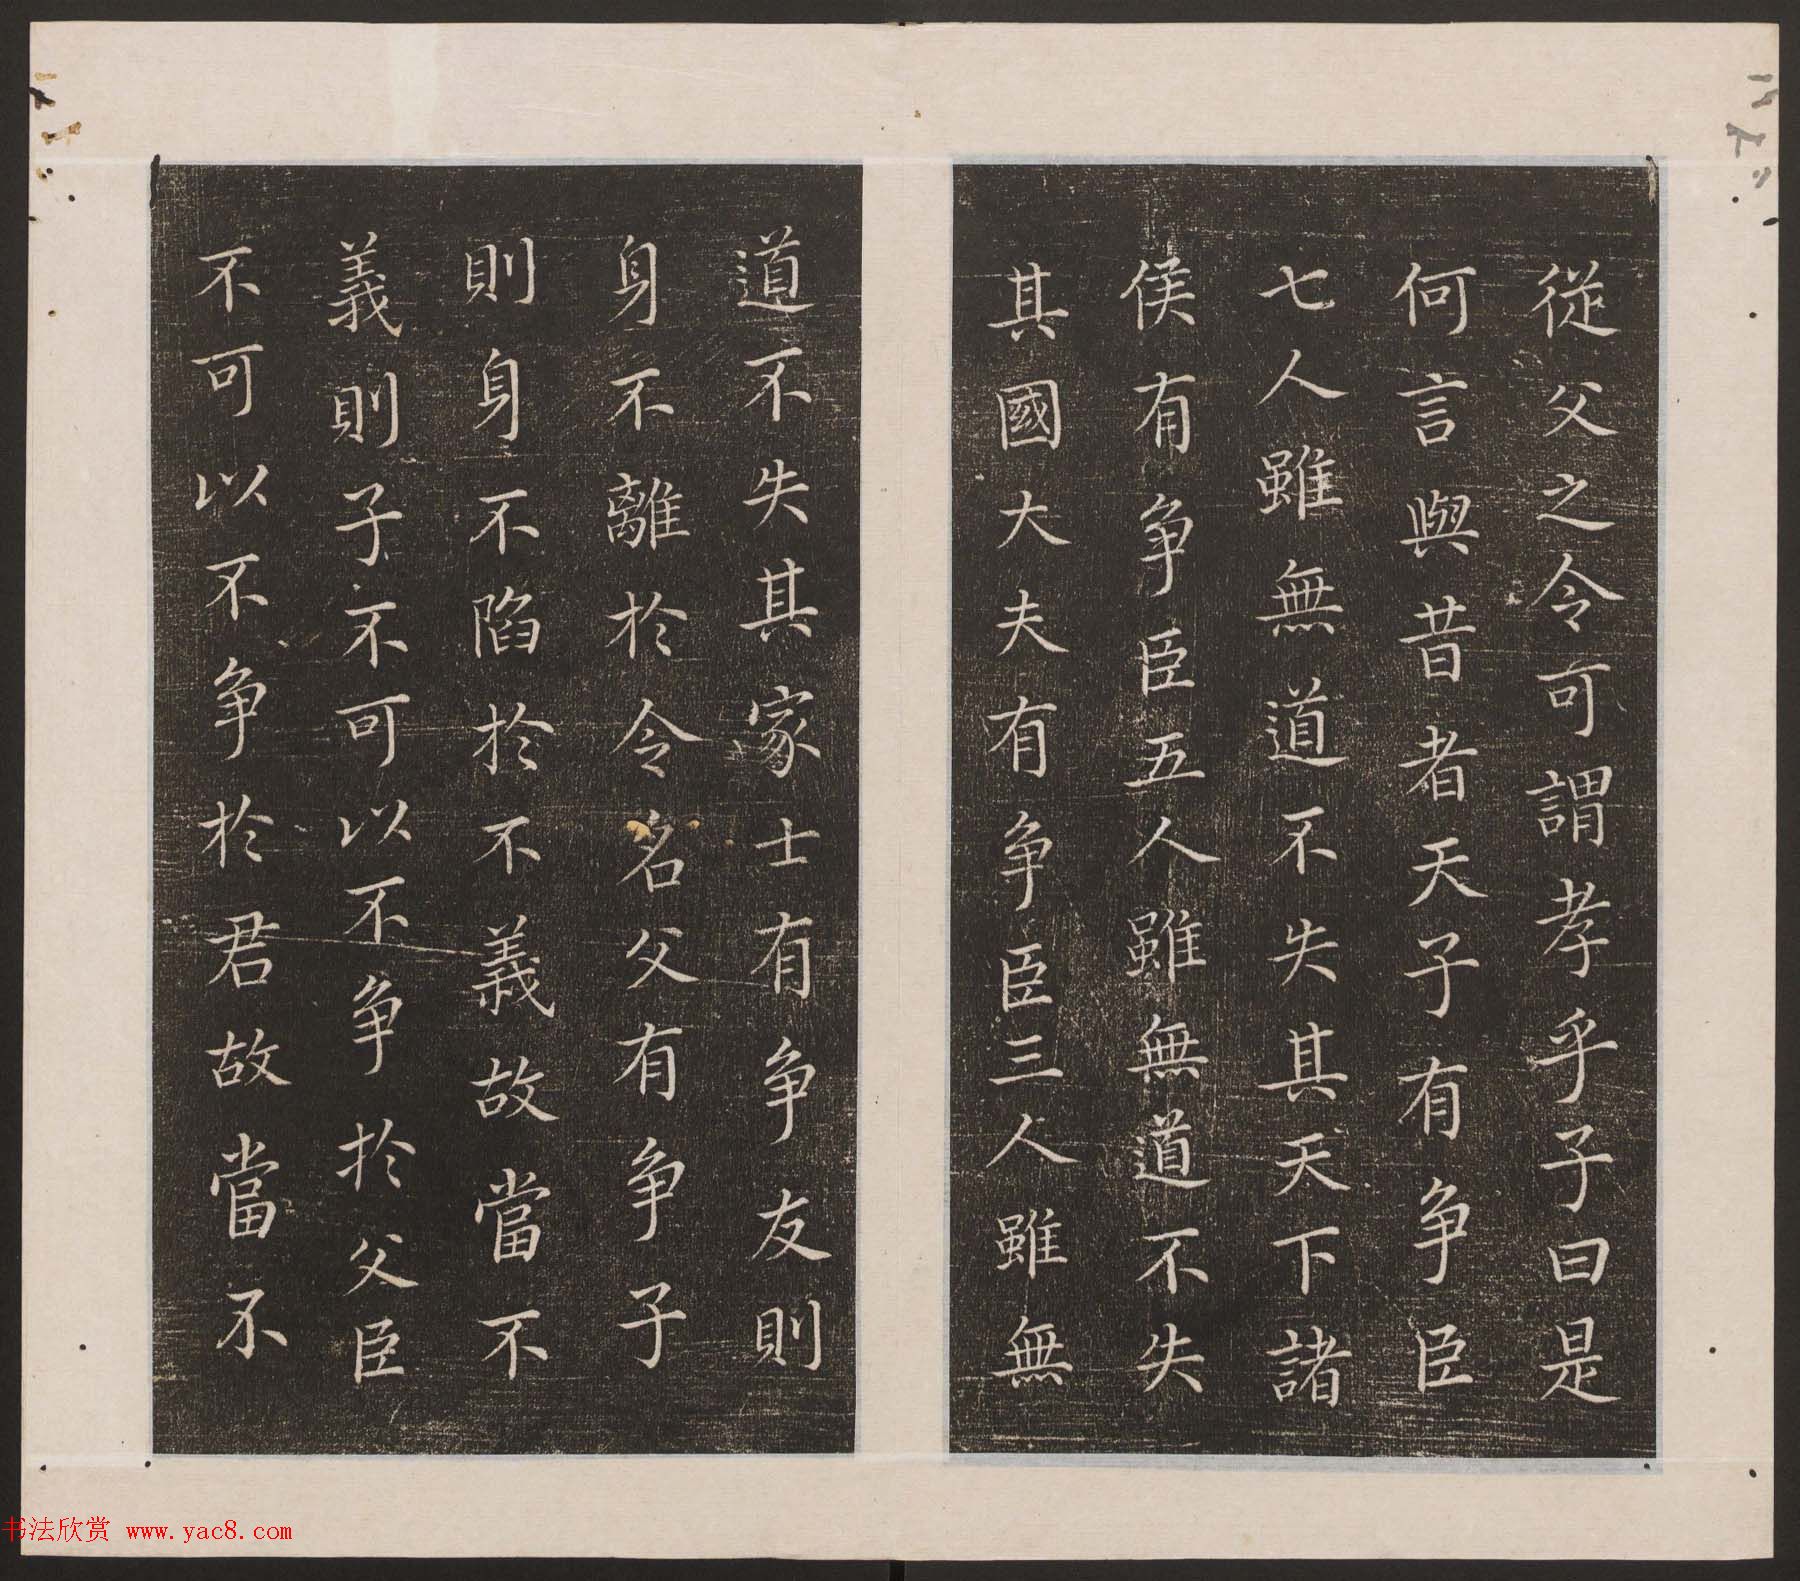 從父之令可謂孝乎子曰是
何言與昔者天子有争臣
七人雖無道不失其天下諸
侯有争臣五人雖無道不失
其國大夫有争臣三人雖無
道不失其家士有争友則
身不離於令名父有争子
則身不陷於不義故當不
義則子不可以不争於父臣
不可以不争於君故當不
书法欣赏 www.yac8.com